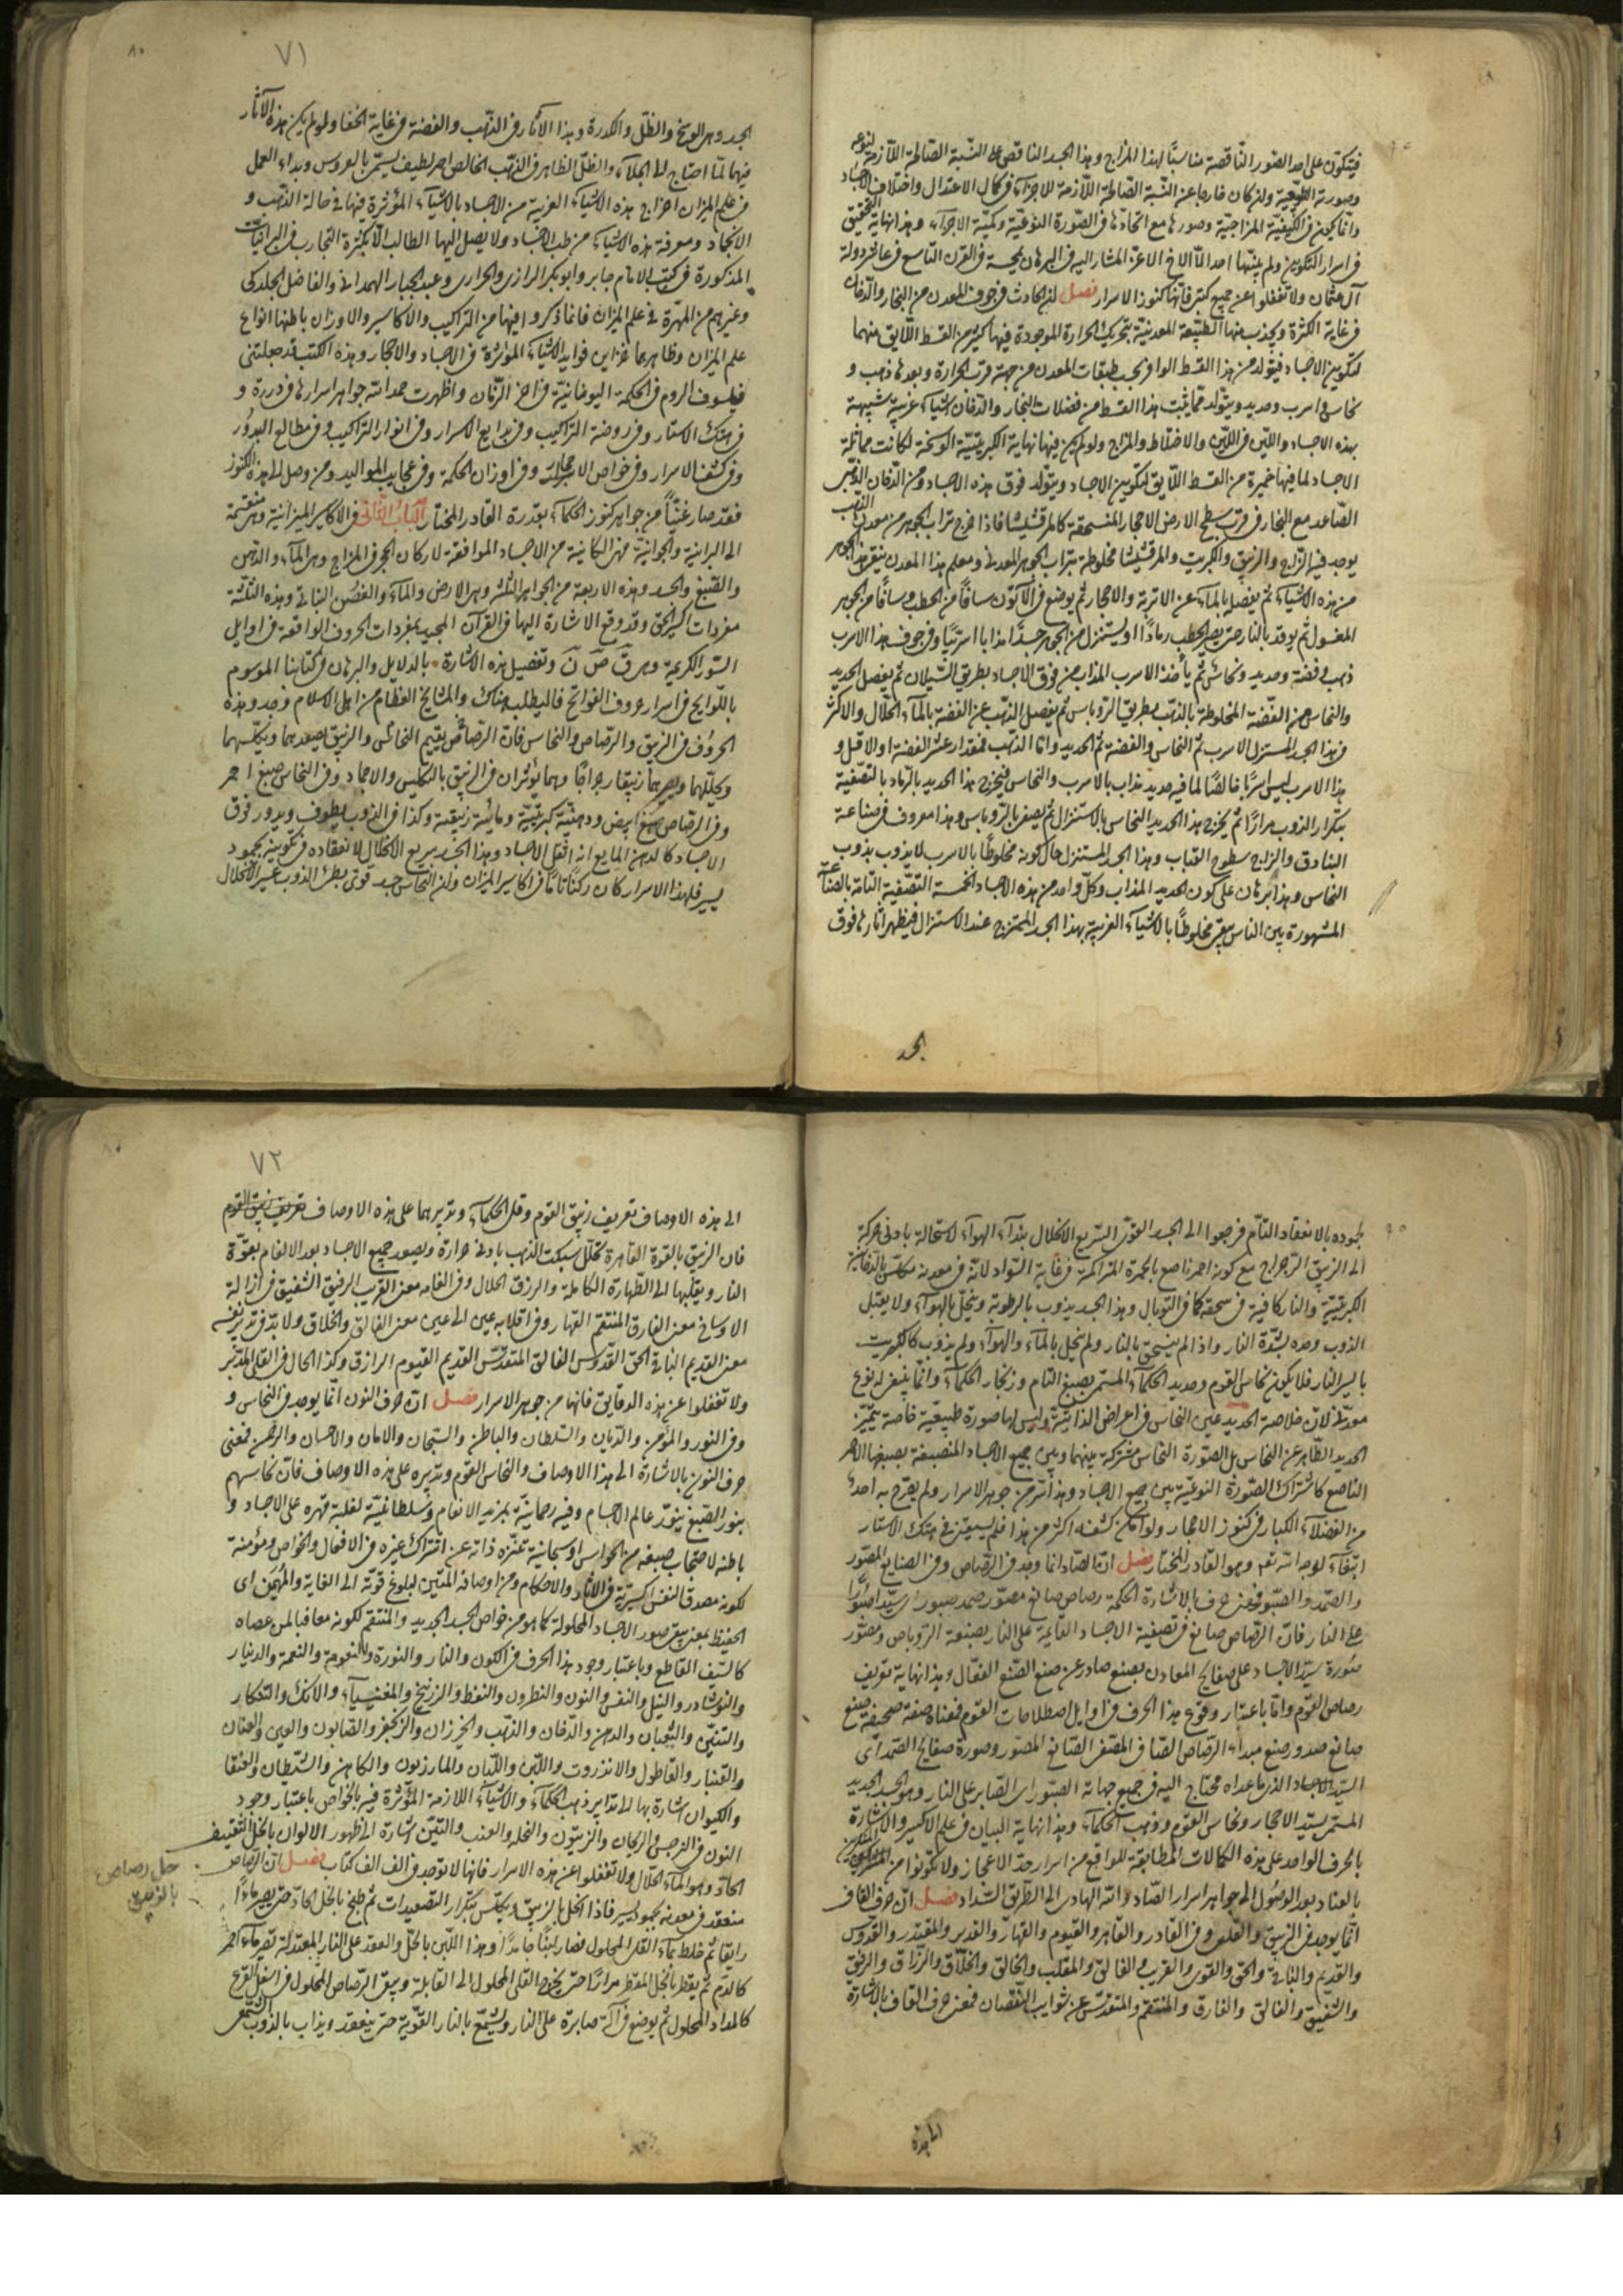 فيتكون على احد الصور الناقصة مناسبًا لهذا المزاج وهذا الجسد الناقص على النسبة الصالحة اللازمة لنوعه
وصورته الطبيعية وان كان خارجا عن النسبة الصالحة اللازمة للاجزآء في كمال الاعتدال واختلاف الاجساد
وانما يكون في الكيفية المزاجية وصورها مع اتحادها في الصورة النوعية وكمية الاجزآء وهذا نهاية التحقيق
في اسرار التكوين ولم ينبها احد الا الاخ الاعز المشار اليه في البرهان في القرن التاسع في عالم دولة
آل عثمان ولا تغفلوا عن جميع كتبي فانها كنوز الاسرار فصل ان الحادث في جوف المعدن من البخار والدخان
في غاية الكثرة ويجذب منهما الطبيعة المعدنية بتحريك الحرارة الموجودة فيها اكثر من القسط اللايق منهما
لتكوين الاجساد فيتولد من هذا القسط الوافر بحسب طبقات المعدن من جهة قرب الحرارة وبعدها ذهب و
نحاس واسرب وحديد ويتولد مما يثبت هذا القسط من فضلات البخار والدخان اشياء غريبة شبيهة
بهذه الاجساد واللين في اللين والاختلاط والمزاج ولو لم يكن فيها نهاية الكبريتية الوسخة لكانت مماثلة
الاجساد لما فيها خميرة من القسط اللايق لتكوين الاجساد ويتولد فوق هذه الاجساد ومن الدخان الذهبي
الصاعد مع البخار في قرب سطح الارض الاحجار المنسحقة كالمرقشيشا فاذا خرج تراب الجوهر من معدن الذهب
يوجد فيه الزاج والزيبق والكبريت والمرقشيشا مخلوطة بتراب الجوهر المعدني ومعلم هذا المعدن ينقي هذا الجوهر
من هذه الاشياء ثم يغسل بالماء عن الاتربة والاحجار ثم يوضع في الاتون سافًا من الحطب وسافًا من الجوهر
المغسول ثم يوقد بالنار حتى يصير الحطب رمادًا ويستنزل من الجوهر جسدًا مذابا اسربيًا وفي جوف هذا الاسرب
ذهب وفضة وحديد ونحاس ثم يأخذ الاسرب المذاب من فوق الاجساد بطريق السيلان ثم يفصل الحديد
والنحاس من الفضة المخلوطة بالذهب بطريق الروباس ثم يفصل الذهب عن الفضة بالماء الحلال والاكثر
في هذا الجسد المستنزل الاسرب ثم النحاس والفضة ثم الحديد واما الذهب فمقدار عشر الفضة او الاقل و
هذا الاسرب ليس اسربًا خالصًا لما فيه حديد مذاب بالاسرب والنحاس فيخرج هذا الحديد بالرماد بالتصفية
بتكرار الذوب مرارًا ثم يخرج هذا الحديد النحاس بالاستنزال ثم يصفى بالروباس وهذا معروف في صناعة
البنادق والزاج سطوح القباب وهذا الجسد المستنزل حال كونه مخلوطًا بالاسرب لا يذوب بذوب
النحاس وهذا برهان على كون الحديد المذاب وكل واحد من هذه الاجساد الخمسة التصفية التامة بالصناعة
المشهورة بين الناس يبقى مخلوطًا بالاشيآء الغريبة بهذا الجسد الممتزج عند الاستنزال فيظهر اثارها فوق
الجسد
٧١
٨٠
الجسد وهي الوسخ والظل والكدرة وهذا الآثار في الذهب والفضة في غاية الخفا ولو لم يكن هذه الآثار
فيهما لما احتاج الى الجلاء والظل الظاهر في الذهب الخالص احمر لطيف يسمى بالعروس ويداء العمل
في علم الميزان اخراج هذه الاشيآء الغريبة من الاجساد بالاشيآء المؤثرة فيها في حالة الذهب و
الانجماد ومعرفة هذه الاشيآء من طب الاجساد ولا يصل اليها الطالب الا بكثرة التجارب في البرانيات
المذكورة في كتب الامام جابر وابو بكر الرازي والحراري وعبد الجبار الهمداني والفاضل الجلدكي
وغيرهم من المهرة في علم الميزان فانما ذكروا فيها من التراكيب والاكاسير والاوزان باطنها انواع
علم الميزان وظاهرها خزاين فوايد الاشيآء المؤثرة في الاجساد والاحجار وهذه الكتب قد جعلتني
فيلسوف الروم في الحكمة اليونانية في اخر الزمان واظهرت حمدا لله جواهر اسرارها في دررة و
في هتك الاستار وفي روضة التراكيب وفي بدايع الاسرار وفي انوار التراكيب وفي مطالع البدور
وفي كشف الاسرار وفي خواص الاحجار وفي اوزان الحكمة وفي عجايب المواليد ومن وصل الى هذه الكنوز
فقد صار غنيًا من جواهر كنوز الحكمآء بقدرة القادر المختار الباب الثاني في الاكاسير الميزانية وهي منقسمة
الى البرانية والجوانية فهي الكانية من الاجساد الموافقة لاركان الحجر في المزاج وهي الماء والدهن
والصبغ والجسد وهذه الاربعة من الجواهر الثلثة وهي الارض والمآء والغصن النباتي وهذه الثلثة
مفردات اكسير الحق وقد وقع الاشارة اليها في القرآن المجيد بمفردات الحروف الواقعة في اوايل
السور الكريمة وهي قٓ صٓ نٓ وتفصيل هذه الاشارة بالدلايل والبرهان في كتابنا الموسوم
باللوايح في اسرار حروف الفواتح فاليطلب هناك والمشايخ العظام من اهل الاسلام وجد هذه
الحروف في الزيبق والرصاص والنحاس فان الرصاص يقيم النحاس والزيبق يصعدهما ويكلسهما
ويحللهما ويصيرهما زيبقا رجراجًا وهما يؤثران في الزيبق بالتكليس والاجماد وفي النحاس صبغ احمر
وفي الرصاص صبغ ابيض ودهنية كبريتية ومائية زيبقية وكذا في الذوب يطوف ويدور فوق
الاجساد كالدهن المايع انه اثقل الاجساد وهذا الجسد سريع الانحلال لانعقاده في تكوينه بجمود
يسير فلهذا الاسرار كان ركنًا تامًا في اكاسير الميزان وان النحاس جسد قوي بطئ الذوب عسير الانحلال
لجموده بالانعقاد التام فرجعوا الى الجسد القوي السريع الانحلال بندآء الهوآء لاستحالة بادنى حركة
الى الزيبق الرجراج مع كونه احمر ناصع بالحمرة المتراكمة في غاية السواد لانه في معدنه مكلس بالدخانية
الكبريتية والنار كافية في سحقه كما في التوبال وهذا الجسد يذوب بالرطوبة وينحل بالهوآء ولا يقبل
الذوب وحده بشدة النار واذا لم ينسحق بالنار ولم ينحل بالمآء والهوآء ولم يذوب كالكبريت
باليسير النار فلا يكون نحاس القوم وحديد الحكمآء المسمى بصبغ التام وزنجار الحكمآء وانما ينبغي له نوع
مورثا لان خلاصة الحديد عين النحاس في اعراض الذاتية وليس لها صورة طبيعية خاصة يتميز
الحديد الظاهر عن النحاس بل الصورة النحاس مشتركة بينهما وبين جميع الاجساد المنصبغة بصبغها الاحمر
الناصع كاشتراك الصورة النوعية بين جميع الاجساد وهذا سر من جوهر الاسرار ولم يصرح به احد
من الفضلآء الكبار في كنوز الاحجار ولو امكن كشفه اكثر من هذا فلم يسبقني في هتك الاستار
ابتغآء لوجه الله تعه وهو القادر المختار فصل ان الصاد انما وجد في الرصاص وفي الصنايع المصور
والصمد والصبور فمعنى حرف بالاشارة الحكمة رصاص صانع مصور صمد صبور اي سيدا صبورًا
على النار فان الرصاص صانع في تصفية الاجساد القايمة على النار بصنعة الروباص ومصور
صورة سيد الاجساد على صفايح المعادن بصنع صادر عن صنع الصنع الفعال وهذا نهاية تعريف
رصاص القوم واما باعتبار وقوع هذا الحرف في اوايل اصطلاحات القوم فمعناه صفة صحيفة صنع
صانع صدور صنع مبداء الرصاص الصاف المصفى الصانع المصور وصورة صفايح الصمد آى
السيد الاجساد الذي ما عداه محتاج اليه في جميع جهاته الصبور اي الصابر على النار وهو الجسد الجديد
المسمى بسيد الاحجار ونحاس القوم وذهب الحكمآء وهذا نهاية البيان في علم الاكسير والاشارة
بالحرف الواحد على هذه الكمالات المطابقة للواقع من اسرار حد الاعجاز ولا تكونوا من المنكرين
بالعناد بعد الوصول الى جواهر اسرار الصاد والله الهادي الى الطريق السداد فصل ان حرف القاف
انما يوجد في الزيبق والقلعي وفي القادر والقاهر والقيوم والقهار والقدير والمقتدر والقدوس
والقديم والباقي والحق والقوي والقريب والفالق والمقلب والخالق والخلاق والرزاق والرفيق
والشفيق والفالق والفارق والمنتقم والمتقدس عن شوايب النقصان فمعنى حرف القاف بالاشارة
الى هذه
٧٢
الى هذه الاوصاف تعريف زيبق القوم وقلى الحكمآء وتدبيرهما على هذه الاوصاف تعريف زيبق القوم
فان الزيبق بالقوة القاهرة تحلل سبكت الذهب بادنى حرارة ويصعد جميع الاجساد بعد الالغام بقوة
النار ويقلبها الى الطهارة الكاملة والرزق الحلال وفي القابه معنى القريب الرفيق الشفيق في ازالة
الاوساخ معنى الفارق المنتقم القهار وفي اقلابه عين الى عين معنى الفالق والخلاق ولابد في تدبير نفسه
معنى القديم الباقي الحق القدوس الفالق المتقدس القديم القيوم الرازق وكذا الحال في القلى المدبر
ولا تغفلوا عن هذه الدقايق فانها من جوهر الاسرار فصل ان حرف النون انما يوجد في النحاس و
وفي النور والمؤمن والديان والسلطان والباطن والسبحان والامان والاحسان والرحمن فمعنى
حرف النون بالاشارة الى هذا الاوصاف والنحاس القوم وتدبيره على هذه الاوصاف فان نحاسهم
بنور الصبغ ينور عالم الاجسام وفيه رحمانية بمزيد الانعام وسلطانية لغلبة قهره على الاجساد و
باطنه لاحتجاب صبغه من الحواس وسبحانية تتنزه ذاته عن اشتراك غيره في الافعال والخواص ومؤمنة
لكونه مصدق النفس اكسيرية في الاثار والاحكام ومن اوصافه المتين لبلوغ قوته الى الغاية والمهيمن اي
الحفيظ بمعنى يبقى صور الاجساد المحلولة كما هو من خواص الجسد الجديد والمنتقم لكونه معاقبا لمن عصاه
كالسيف القاطع وباعتبار وجود هذا الحرف في الكون والنار والنورة والنعومة والنعمة والدينار
والنوشادر والنيل والنفس والنون والنطرون والنفط والزرنيخ والمغنيسيآء والانك والتنكار
والتنين والثعبان والدهن والدخان والذهب والخيزران والزنجفر والصابون والعين والعنان
والقنبار والقاطول والانزروت واللبن واللبان والمازريون والكاهن والشيطان والعنقا
والكيوان اشارة بها الى تدابير ذهب الحكمآء والاشيآء اللازمة المؤثرة فيه بالخواص باعتبار وجود
النون في النرجس والريحان والزيتون والنخله والعذب والتين اشارة الى ظهور الالوان بالخل الثقيف
الحاد وهو المآء الحلال ولا تغفلوا عن هذه الاسرار فانها لا توجد في الف الف كتاب فصل ان الرصاص
منعقد في معدنه بجمود يسير فاذا انحل بالزيبق ويكلس بتكرار التصعيدات ثم طبخ بالخل الحاد حتى يصير مآءًا
رايقا ثم خلط بمآء القلى المحلول فصار لبنًا جامدًا وهذا اللبن بالحل والعقد على النار المعتدلة تصير مآء احمر
كالدم ثم يقطر بالخل المقطر مرارًا حتى يخرج القلى المحلول الى القابلة ويبقى الرصاص المحلول في اسفل القرع
كالمداد المحلول ثم يوضع في آلة صابرة على النار ويشمع بالنار القوية حتى ينعقد ويذاب بالذوب الشمعي
حل رصاص
بالزيبق